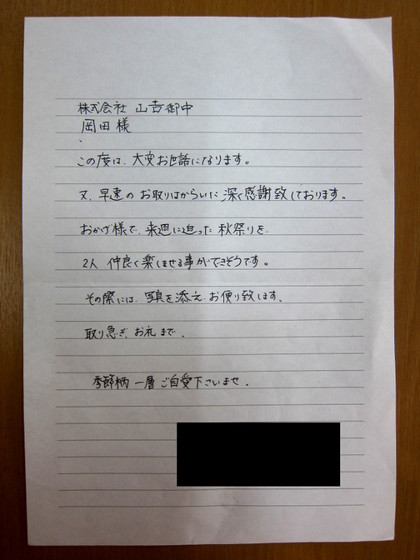 株式会社 山吉御中
岡田様
この度は、大変お世話になります。
又、早速の お取りはからいに 深く感謝致しております。
おかげ様で、来週に迫った 秋祭りを
2人 仲良く楽しませる事ができそうです。
その際には、写真を添え お便り致します。
取り急ぎ、お礼まで、
季節柄 一層 ご自愛下さいませ、